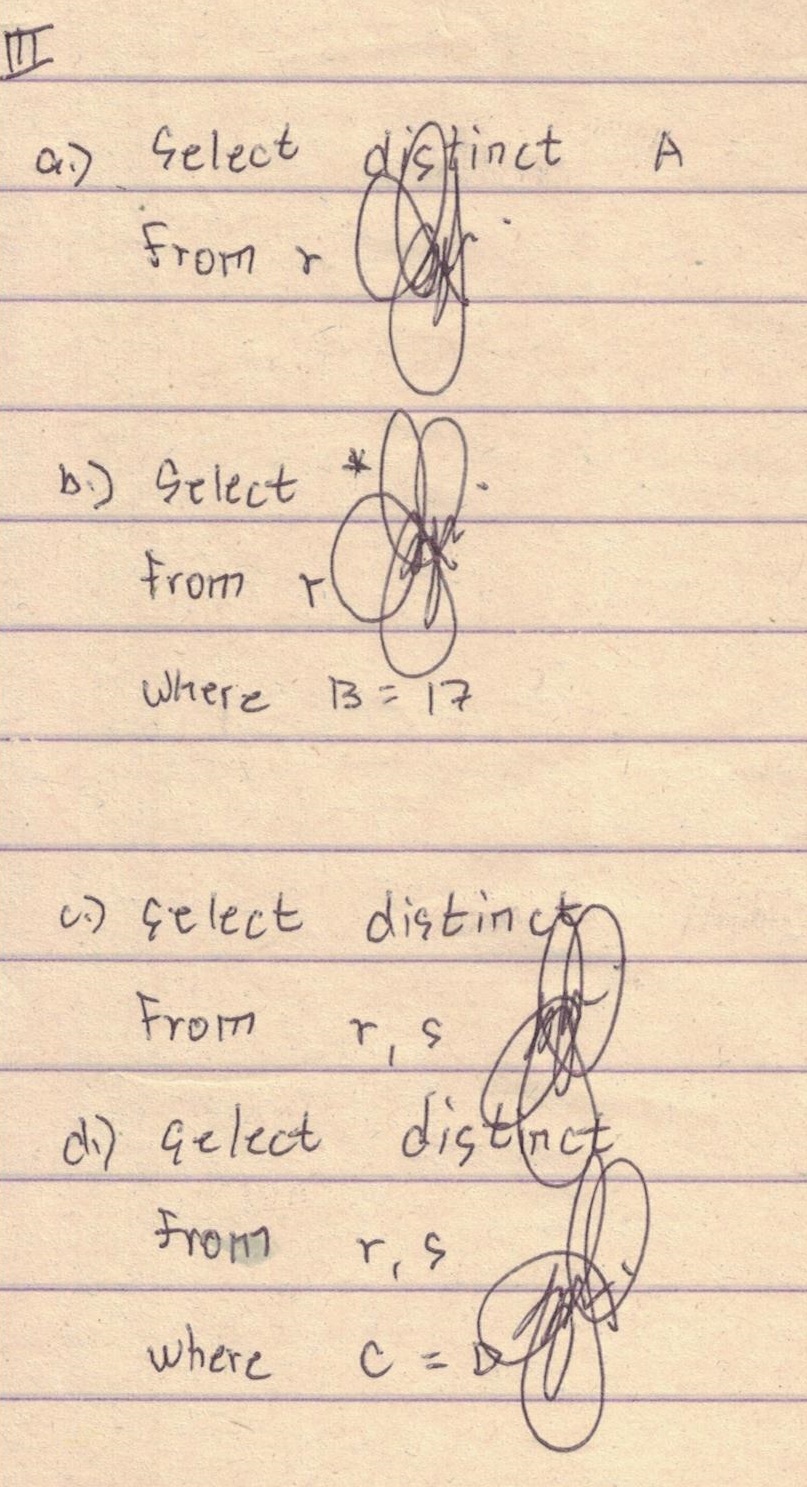 III
a.) Select distinct A
From r
b.) Select *
From r
where B = 17
c.) Select distinct
From r, s
d.) Select distinct
From r, s
where C = D